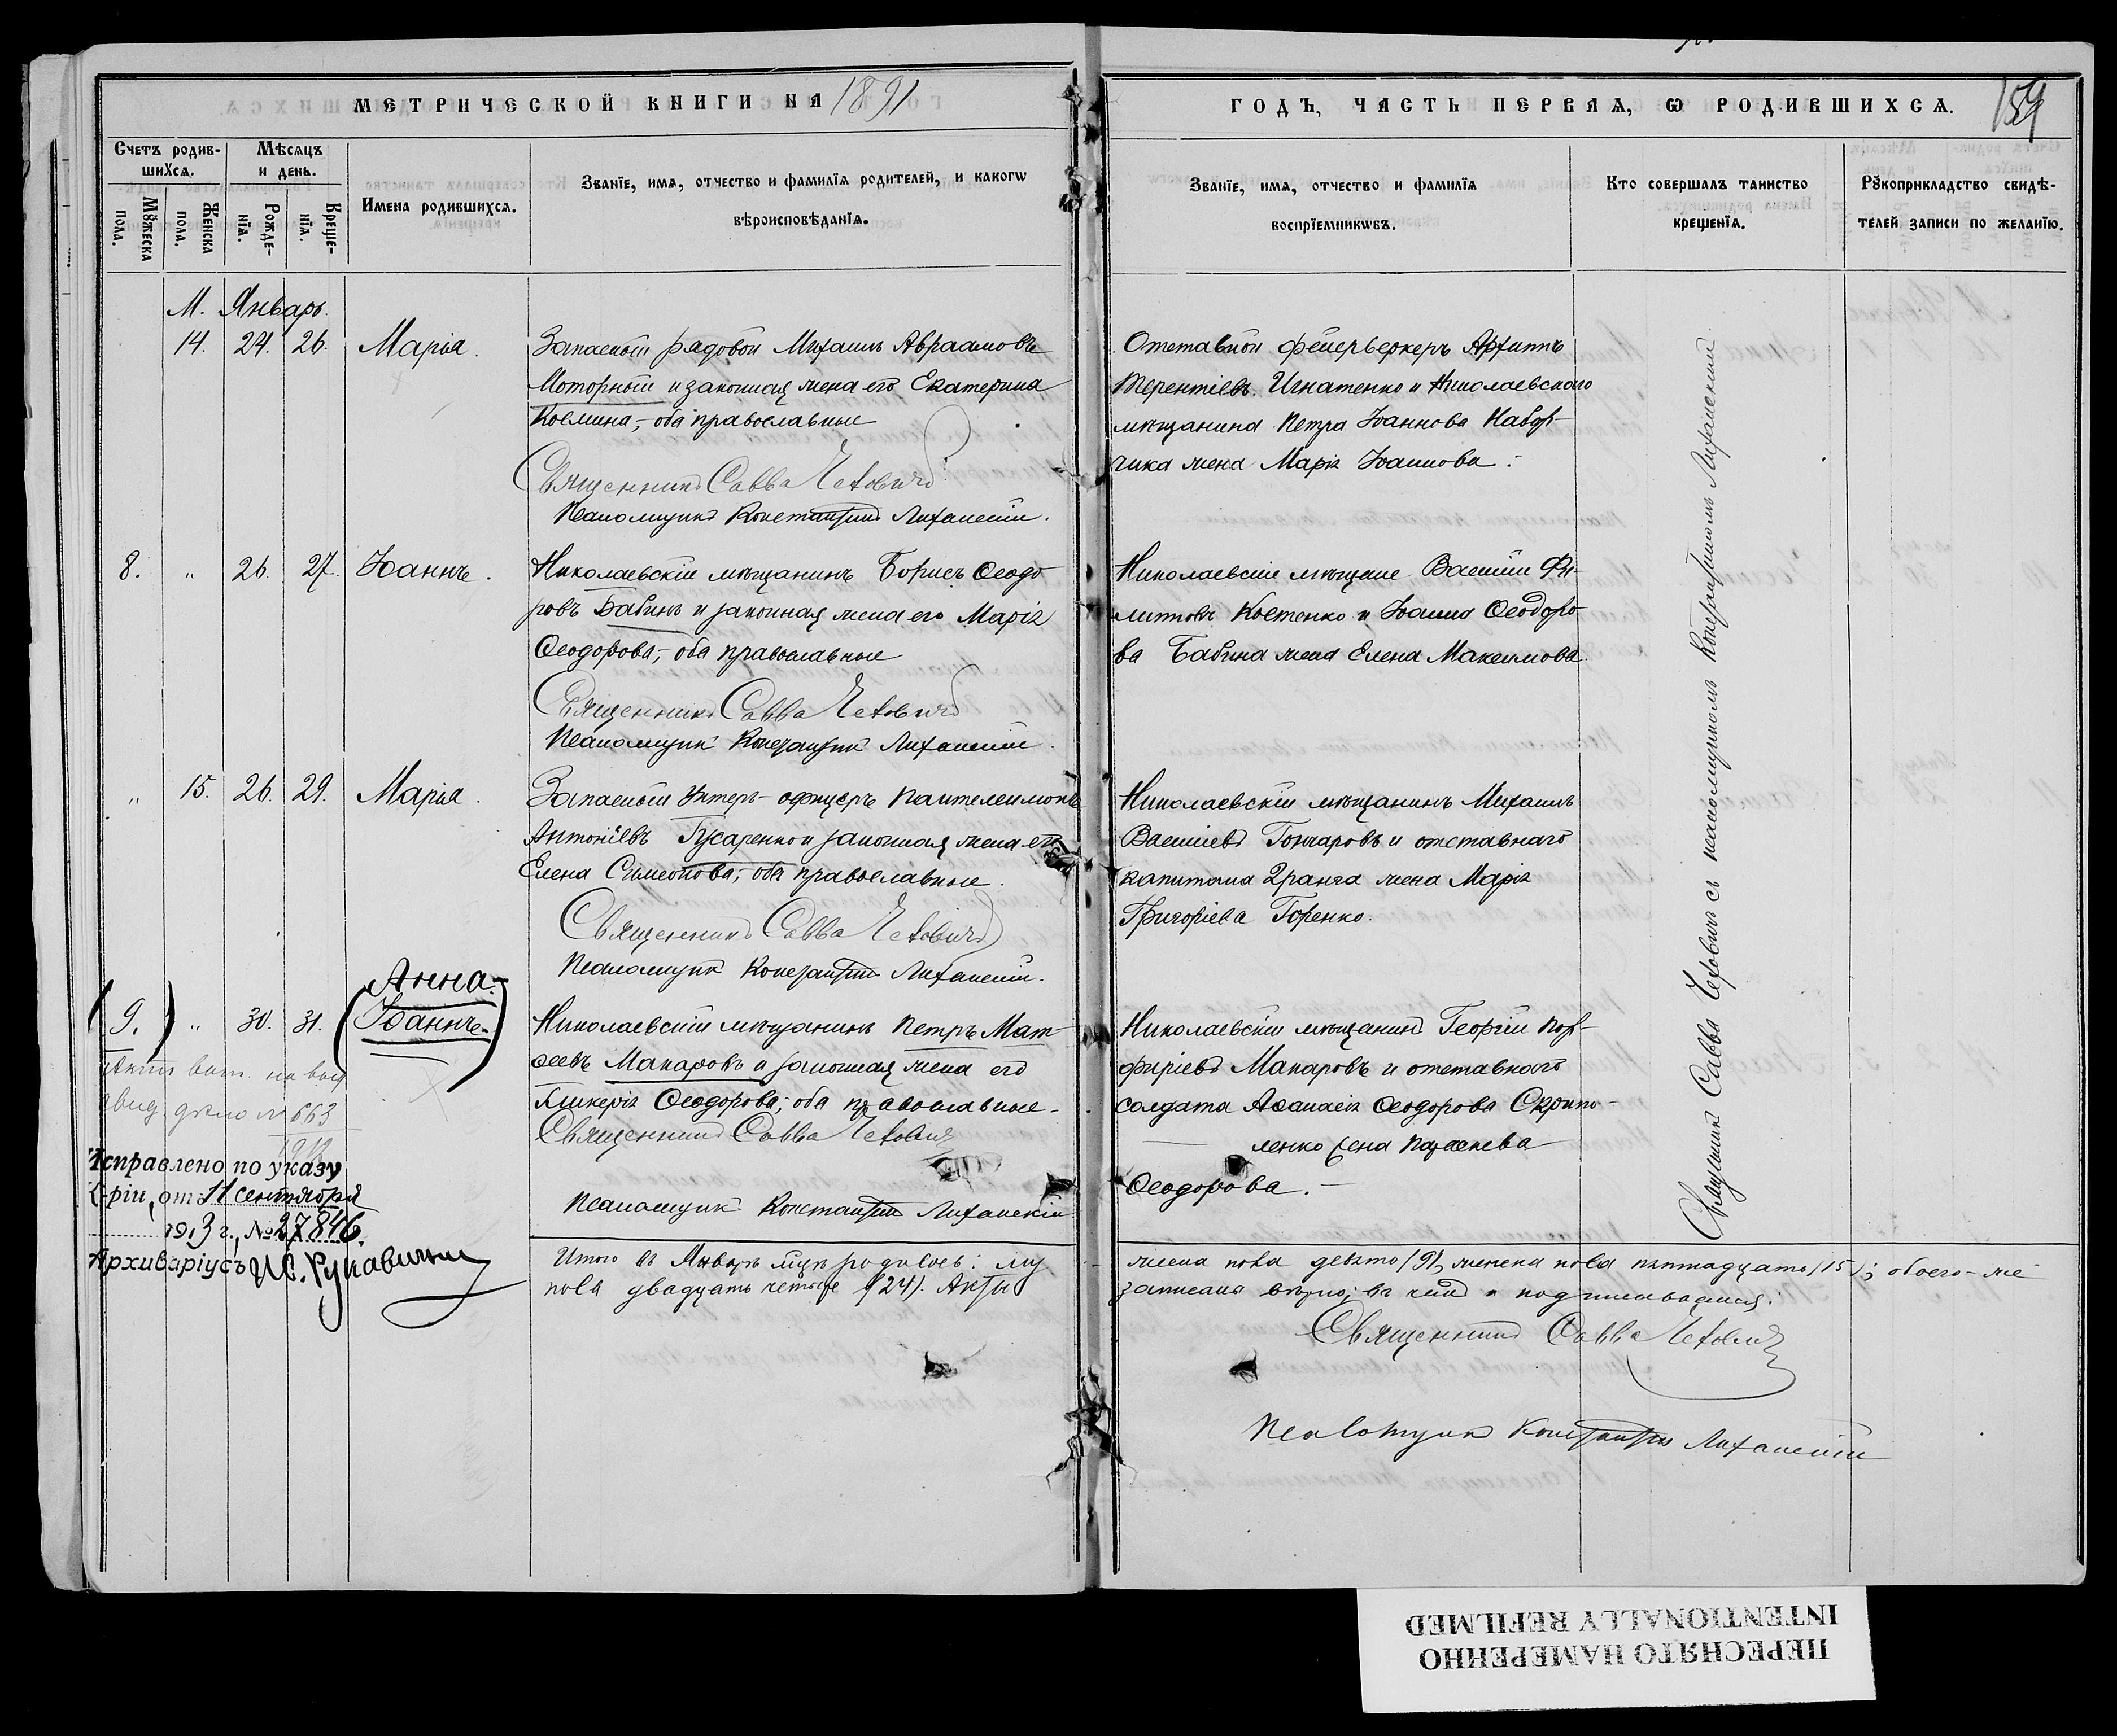 МЕТРИЧЕСКОЙ КНИГИ НА 1891
ГОДЪ, ЧАСТЬ ПЕРВАЯ, Ѡ РОДИВШИХСЯ. 159
Счетъ родив-
шихся.
Мѣсяцъ
и день.
Имена родившихся.
Званїе, имя, отчество и фамилїя родителей, и какогѡ
вѣроисповѣданїя.
Мꙋжеска
пола.
Женска
пола.
Рожде-
нїя.
Креще-
нїя.
Званїе, имя, отчество и фамилїя
воспрїемникѡвъ.
Кто совершалъ таинство
крещенїя.
Рꙋкоприкладство свидѣ-
телей записи по желанїю.
М. Январь.
14. 24. 26. Марія.
Запасный рядовой Михаилъ Авраамовъ
Моторный и законная жена его Екатерина
Козмина, оба православные
Священникъ Савва Чехович
Псаломщикъ Константинъ Лиханскій.
Отставной фейерверкеръ Архипъ
Терентіевъ Игнатенко и Николаевского
мѣщанина Петра Іоаннова Набор-
чика жена Марія Іоаннова.
8. " 26. 27. Іоаннъ.
Николаевскій мѣщанинъ Борисъ Ѳеодо
ровъ Бабинъ и законная жена его Марія
Ѳеодорова, оба православные
Священникъ Савва Чехович
Псаломщикъ Константинъ Лиханскій.
Николаевскіе мѣщане Василій Фи-
липповъ Костенко и Іоанна Ѳеодоро-
ва Бабина жена Елена Максимова.
" 15. 26. 29. Марія.
Запасный Унтеръ-офицеръ Пантелеимонъ
Антоніевъ Гусаренко и законная жена его
Елена Симеонова, оба православные.
Священникъ Савва Чехович
Псаломщикъ Константинъ Лиханскій.
Николаевскій мѣщанинъ Михаилъ
Василіевъ Гончаровъ и отставнаго
капитана 2 ранга жена Марія
Григоріева Горенко.
Анна.
(9.) " 30. 31. (Іоаннъ.)
Николаевскій мѣщанинъ Петръ Мат-
ѳеевъ Макаровъ и законная жена его
Гликерія Ѳеодорова, оба православные.
Священникъ Савва Чехович
Псаломщикъ Константинъ Лиханскій
Николаевскій мѣщанинъ Георгій Пор-
фиріевъ Макаровъ и отставного
солдата Аѳанасія Ѳеодорова Скрипо-
ленко жена Параскева
Ѳеодорова.
Священникъ Савва Чеховичъ съ псаломщикомъ Константиномъ Лиханскимъ
дѣло № 663
Исправлено по указу
К-ріи, отъ 11 сентября
1913 г., № 27846.
Архиваріусъ
Итого въ Январѣ мцѣ родилось: му
жеска пола девять (9), женска пола пятнадцать (15); обоего-же
пола двадцать четыре (24). Акты
записаны вѣрно; въ чемъ и подписываемся:
Священникъ Савва Чехович
Псаломщикъ Константинъ Лиханскій
ПЕРЕСНЯТО НАМЕРЕННО
INTENTIONALLY REFILMED